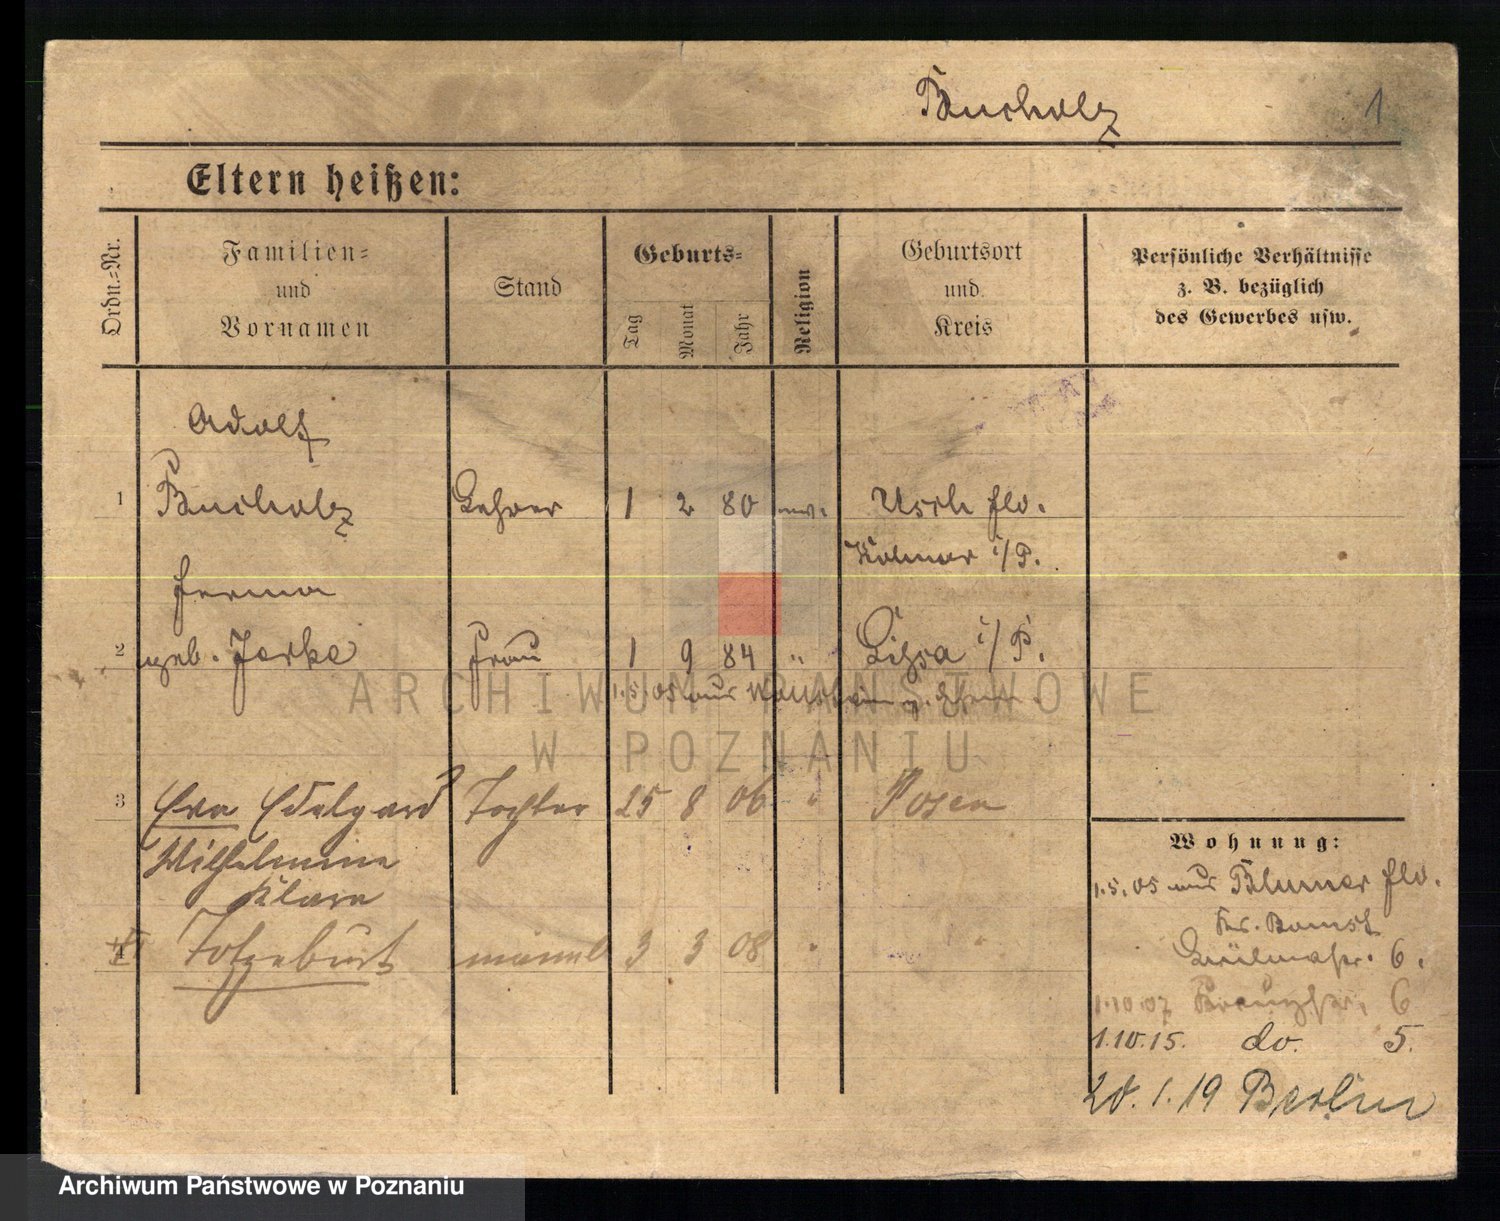 Bucholz 1
Eltern heißen:
Ordn.-Nr.
Familien- und Vornamen
Stand
Geburts-
Tag Monat Jahr
Religion
Geburtsort und Kreis
Persönliche Verhältnisse
z. B. bezüglich
des Gewerbes usw.
Adolf
1 Bucholz Lehrer 1 2 80 ev. Usch fld.
Kolmar i/P.
Herma
2 geb. Jerke Frau 1 9 84 " Lissa i/P.
1.5.05 aus
ARCHIWUM PAŃSTWOWE
W POZNANIU
3 Eva Edelgard Tochter 25 8 06 " Posen
Wilhelmine
Klara
4 Totgeburt männl 3 3 08 "
Wohnung:
1.5.05 aus Blumer fld.
Kr. Bomst
6.
1.10.07 6
1.10.15. do. 5.
20.1.19 Berlin
Archiwum Państwowe w Poznaniu